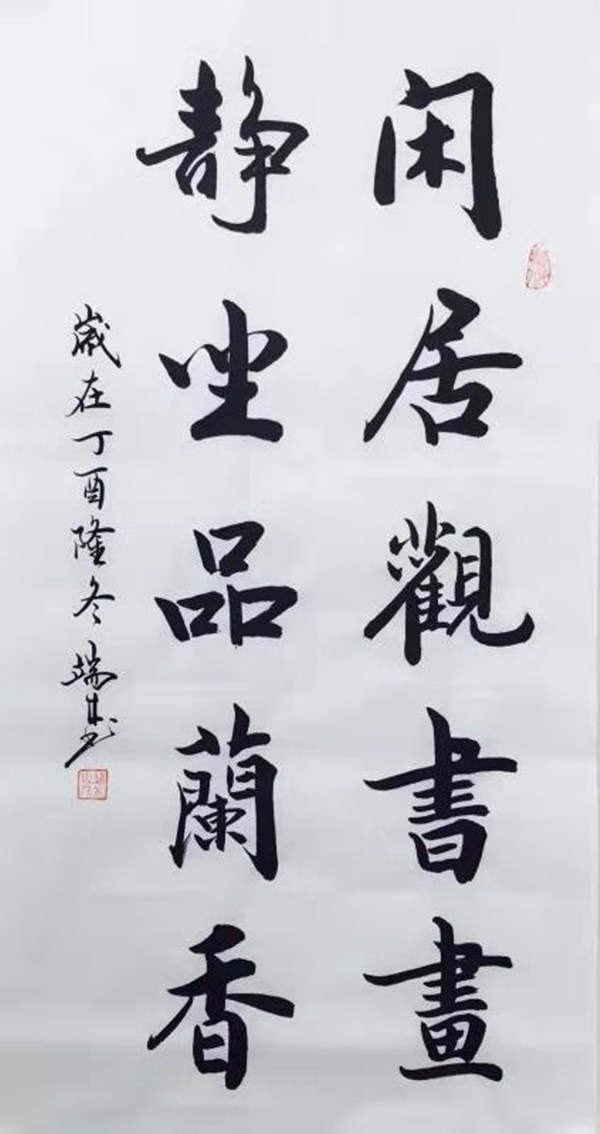 闲居觀書畫
静坐品蘭香
歲在丁酉隆冬 端